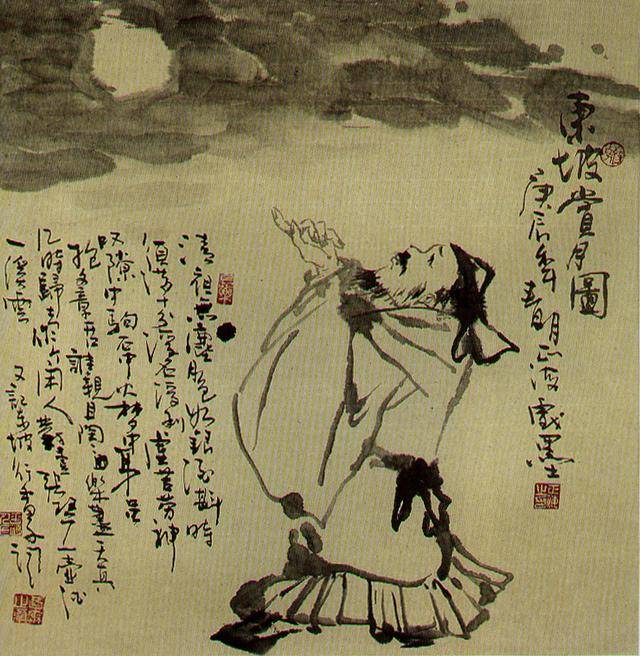 東坡賞月圖
庚辰年春明正海戲墨
清夜無塵月色如銀酒斟時
須滿十分浮名浮利虛苦勞神
叹隙中駒石中火梦中身虽
抱文章開口誰親且陶陶樂盡天真
几時歸去作个闲人對一張琴一壺酒
一溪雲 又記東坡行香子